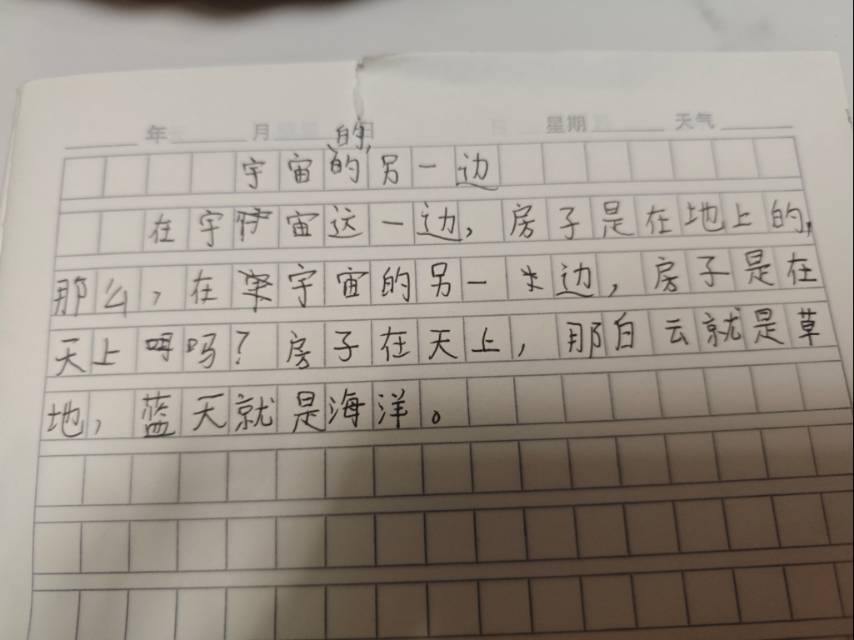 年 月 日 星期 天气
的
宇宙的另一边
在宇宙这一边，房子是在地上的，
那么，在宇宙的另一边，房子是在
天上吗？房子在天上，那白云就是草
地，蓝天就是海洋。